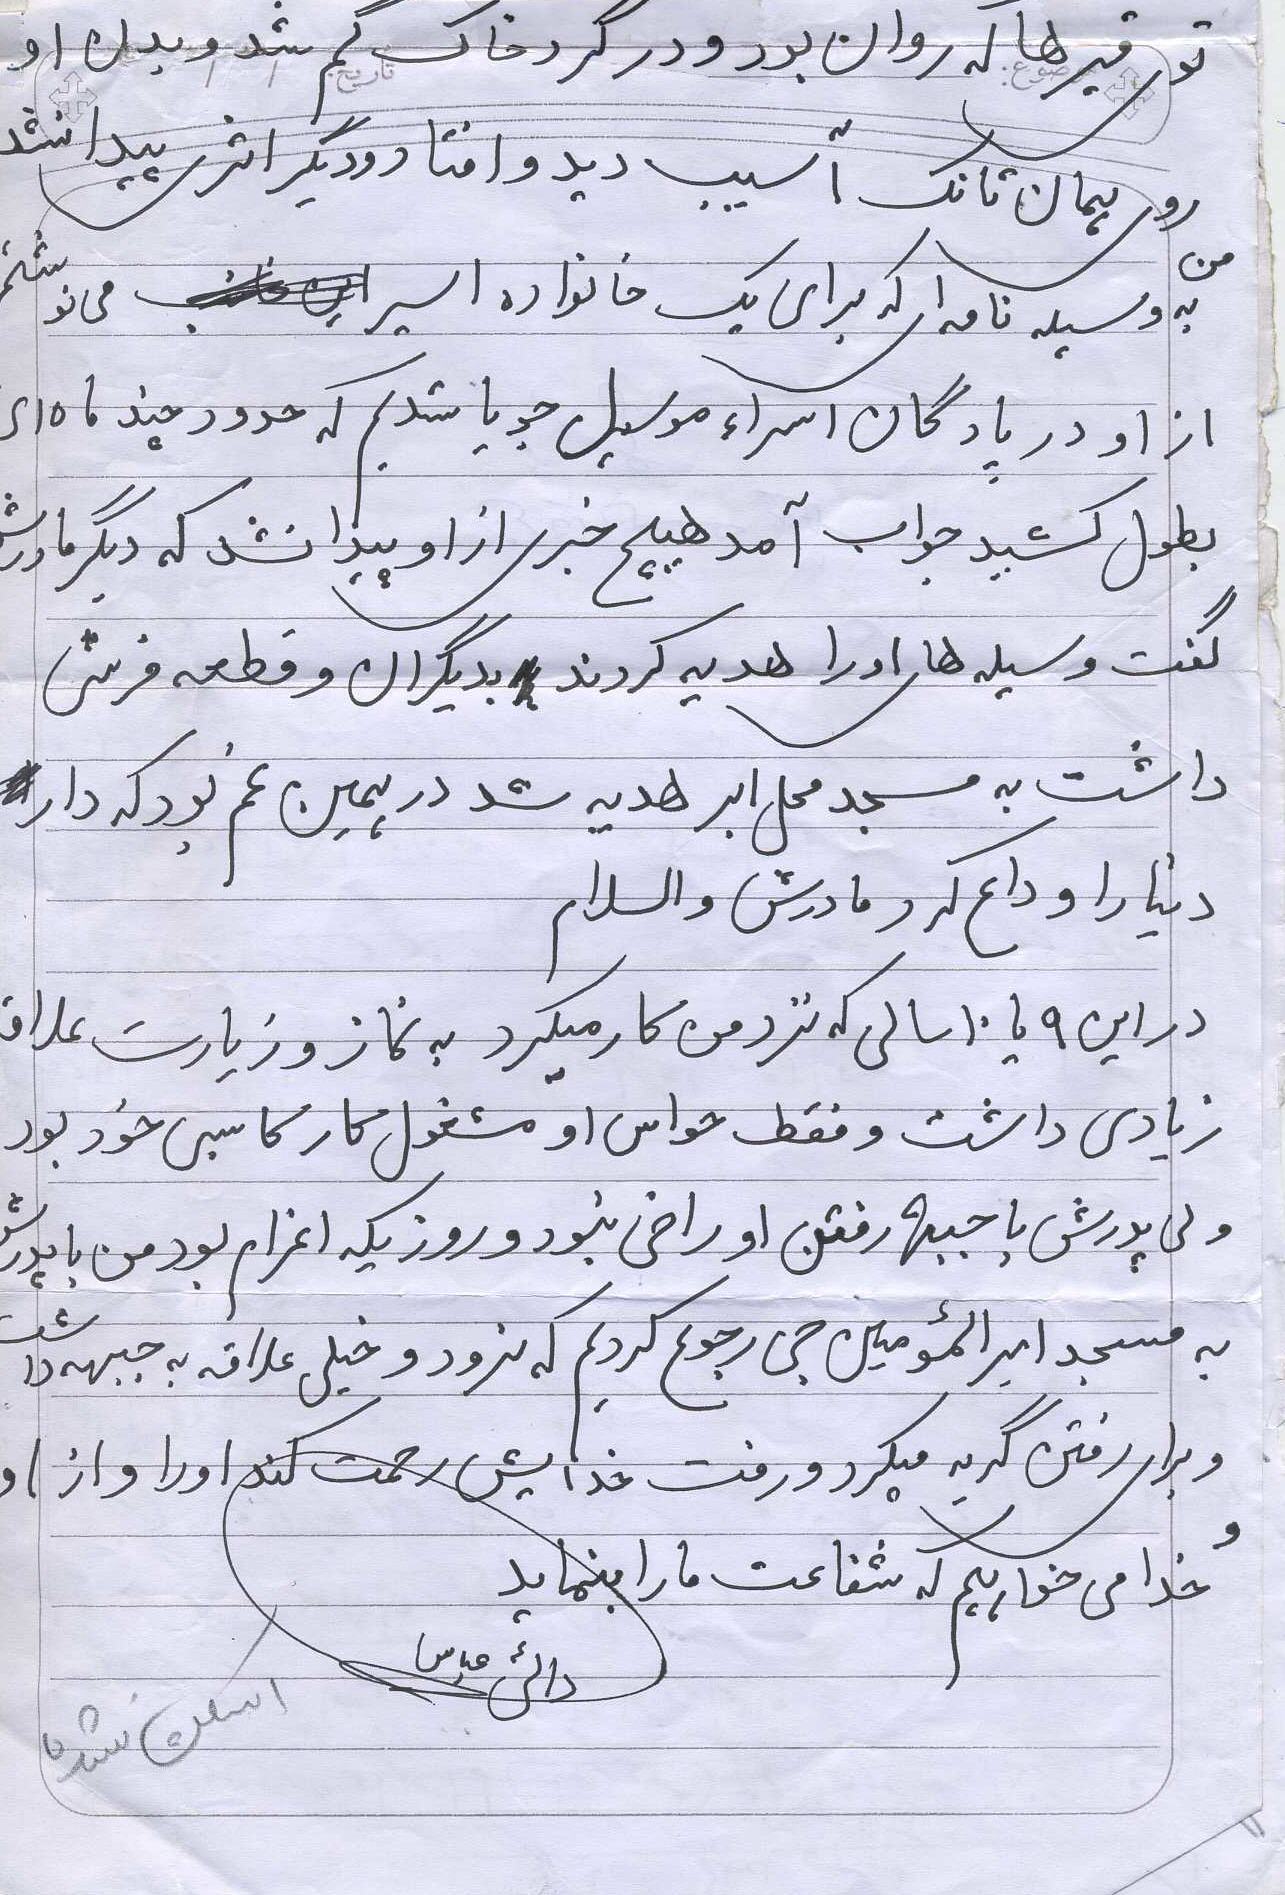 توی قیرها که روان بود و در گرد خاک گم شد و بدن او
موضوع: تاریخ: / /
روی همان تانک آسیب دید و افتاد و دیگر اثری پیدا نشد
من به وسیله نامه ای که برای یک خانواده اسیر می نوشتم
از او در پادگان اسراء موسیل جویا شدیم که حدود چند ماه ای
بطول کشید جواب آمد هیچ خبری از او پیدا نشد که دیگر مادرش
گفت وسیله های اورا هدیه کردند بدیگران و قطعه فرشی
داشت به مسجد محل ابر هدیه شد در همین غم بود که دار
دنیا را وداع کرد مادرش والسلام
در این ۹ یا ۱۰ سالی که نزد من کار میکرد به نماز و زیارت علاقه
زیادی داشت و فقط حواس او مشغول کار کاسبی خود بود
ولی پدرش با جبهه رفتن او راضی نبود و روزیکه اعزام بود من با پدرش
به مسجد امیر المؤمنین جی رجوع کردیم که نرود و خیلی علاقه به جبهه داشت
و برای رفتن گریه میکرد و رفت خدایش رحمت کند اورا و از او
و خدا می خواهیم که شفاعت ما را بنماید
دائی عباس
اسکن شد